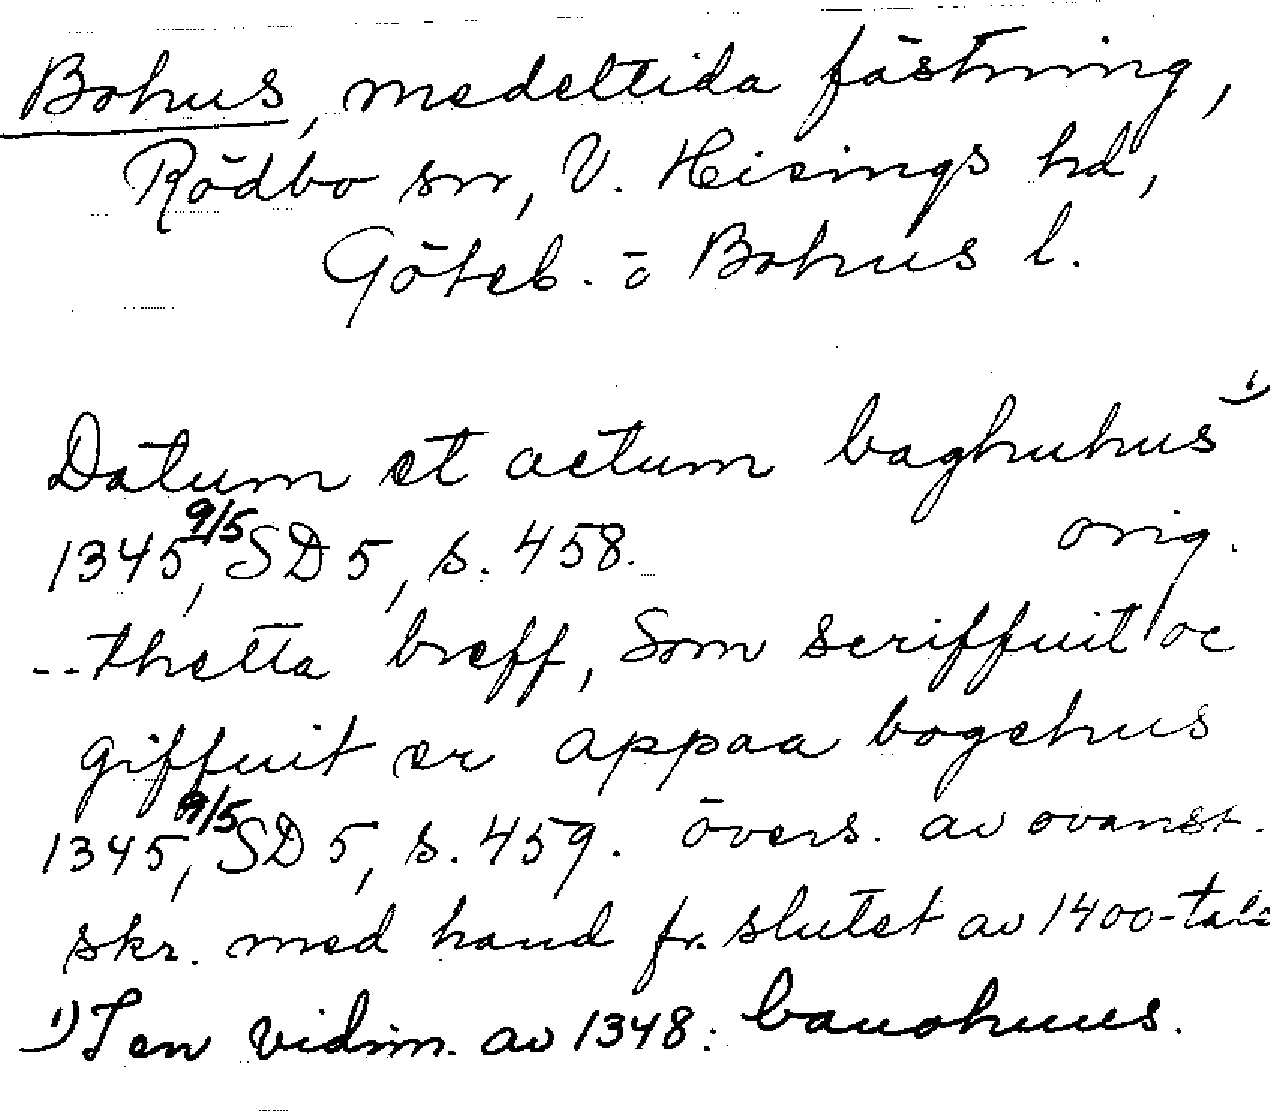 Bohus, medeltida fästning,
Rödbo sn, V. Hisings hd,
Göteb. o Bohus l.
Datum et actum baghuhus 1)
1345 9/5, SD 5, s. 458. orig.
--thetta breff, Som scriffuit oc
giffuit er appaa bogehus
1345 9/5, SD 5, s. 459. övers. av ovanst.
skr. med hand fr. slutet av 1400-talet
1) I en vidim. av 1348: bauohuus.